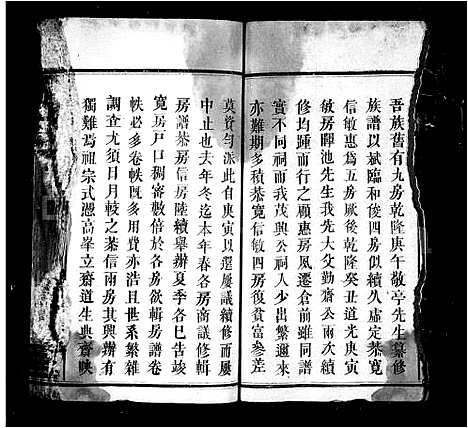 吾族舊有九房乾隆庚午敬亭先生纂修
族譜以斌臨和俊四房似續久虛定恭寬
信敏惠爲五房厥後乾隆癸丑道光庚寅
敏房暉池先生我先大父勤齋公兩次續
修均踵而行之顧惠房風還倉前雖同譜
實不同祠而我茂興公祠人少出繁邇來
亦難期多積恭寬信敏四房復貧富參差
莫資勻派此自庚寅以還屢議續修而屢
中止也去年冬迄本年春各房商議修輯
房譜恭房信房陸續舉辦夏季各巳告竣
寬房戶口稠密數倍於各房欲輯房譜卷
帙必多卷帙既多用費亦浩且世系繁雜
調查尤須日月較之恭信兩房其興辦有
獨難焉祖宗式憑高峯立齋道生典齋映